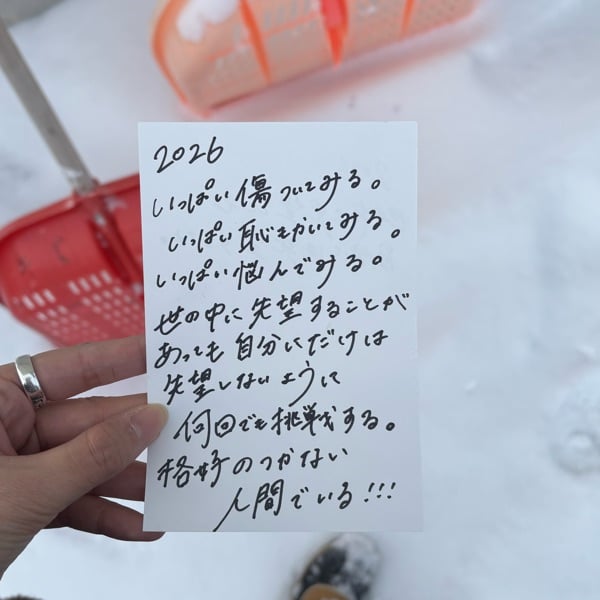 2026
いっぱい傷ついてみる。
いっぱい恥をかいてみる。
いっぱい悩んでみる。
世の中に失望することが
あっても自分にだけは
失望しないように
何回でも挑戦する。
格好のつかない
人間でいる!!!